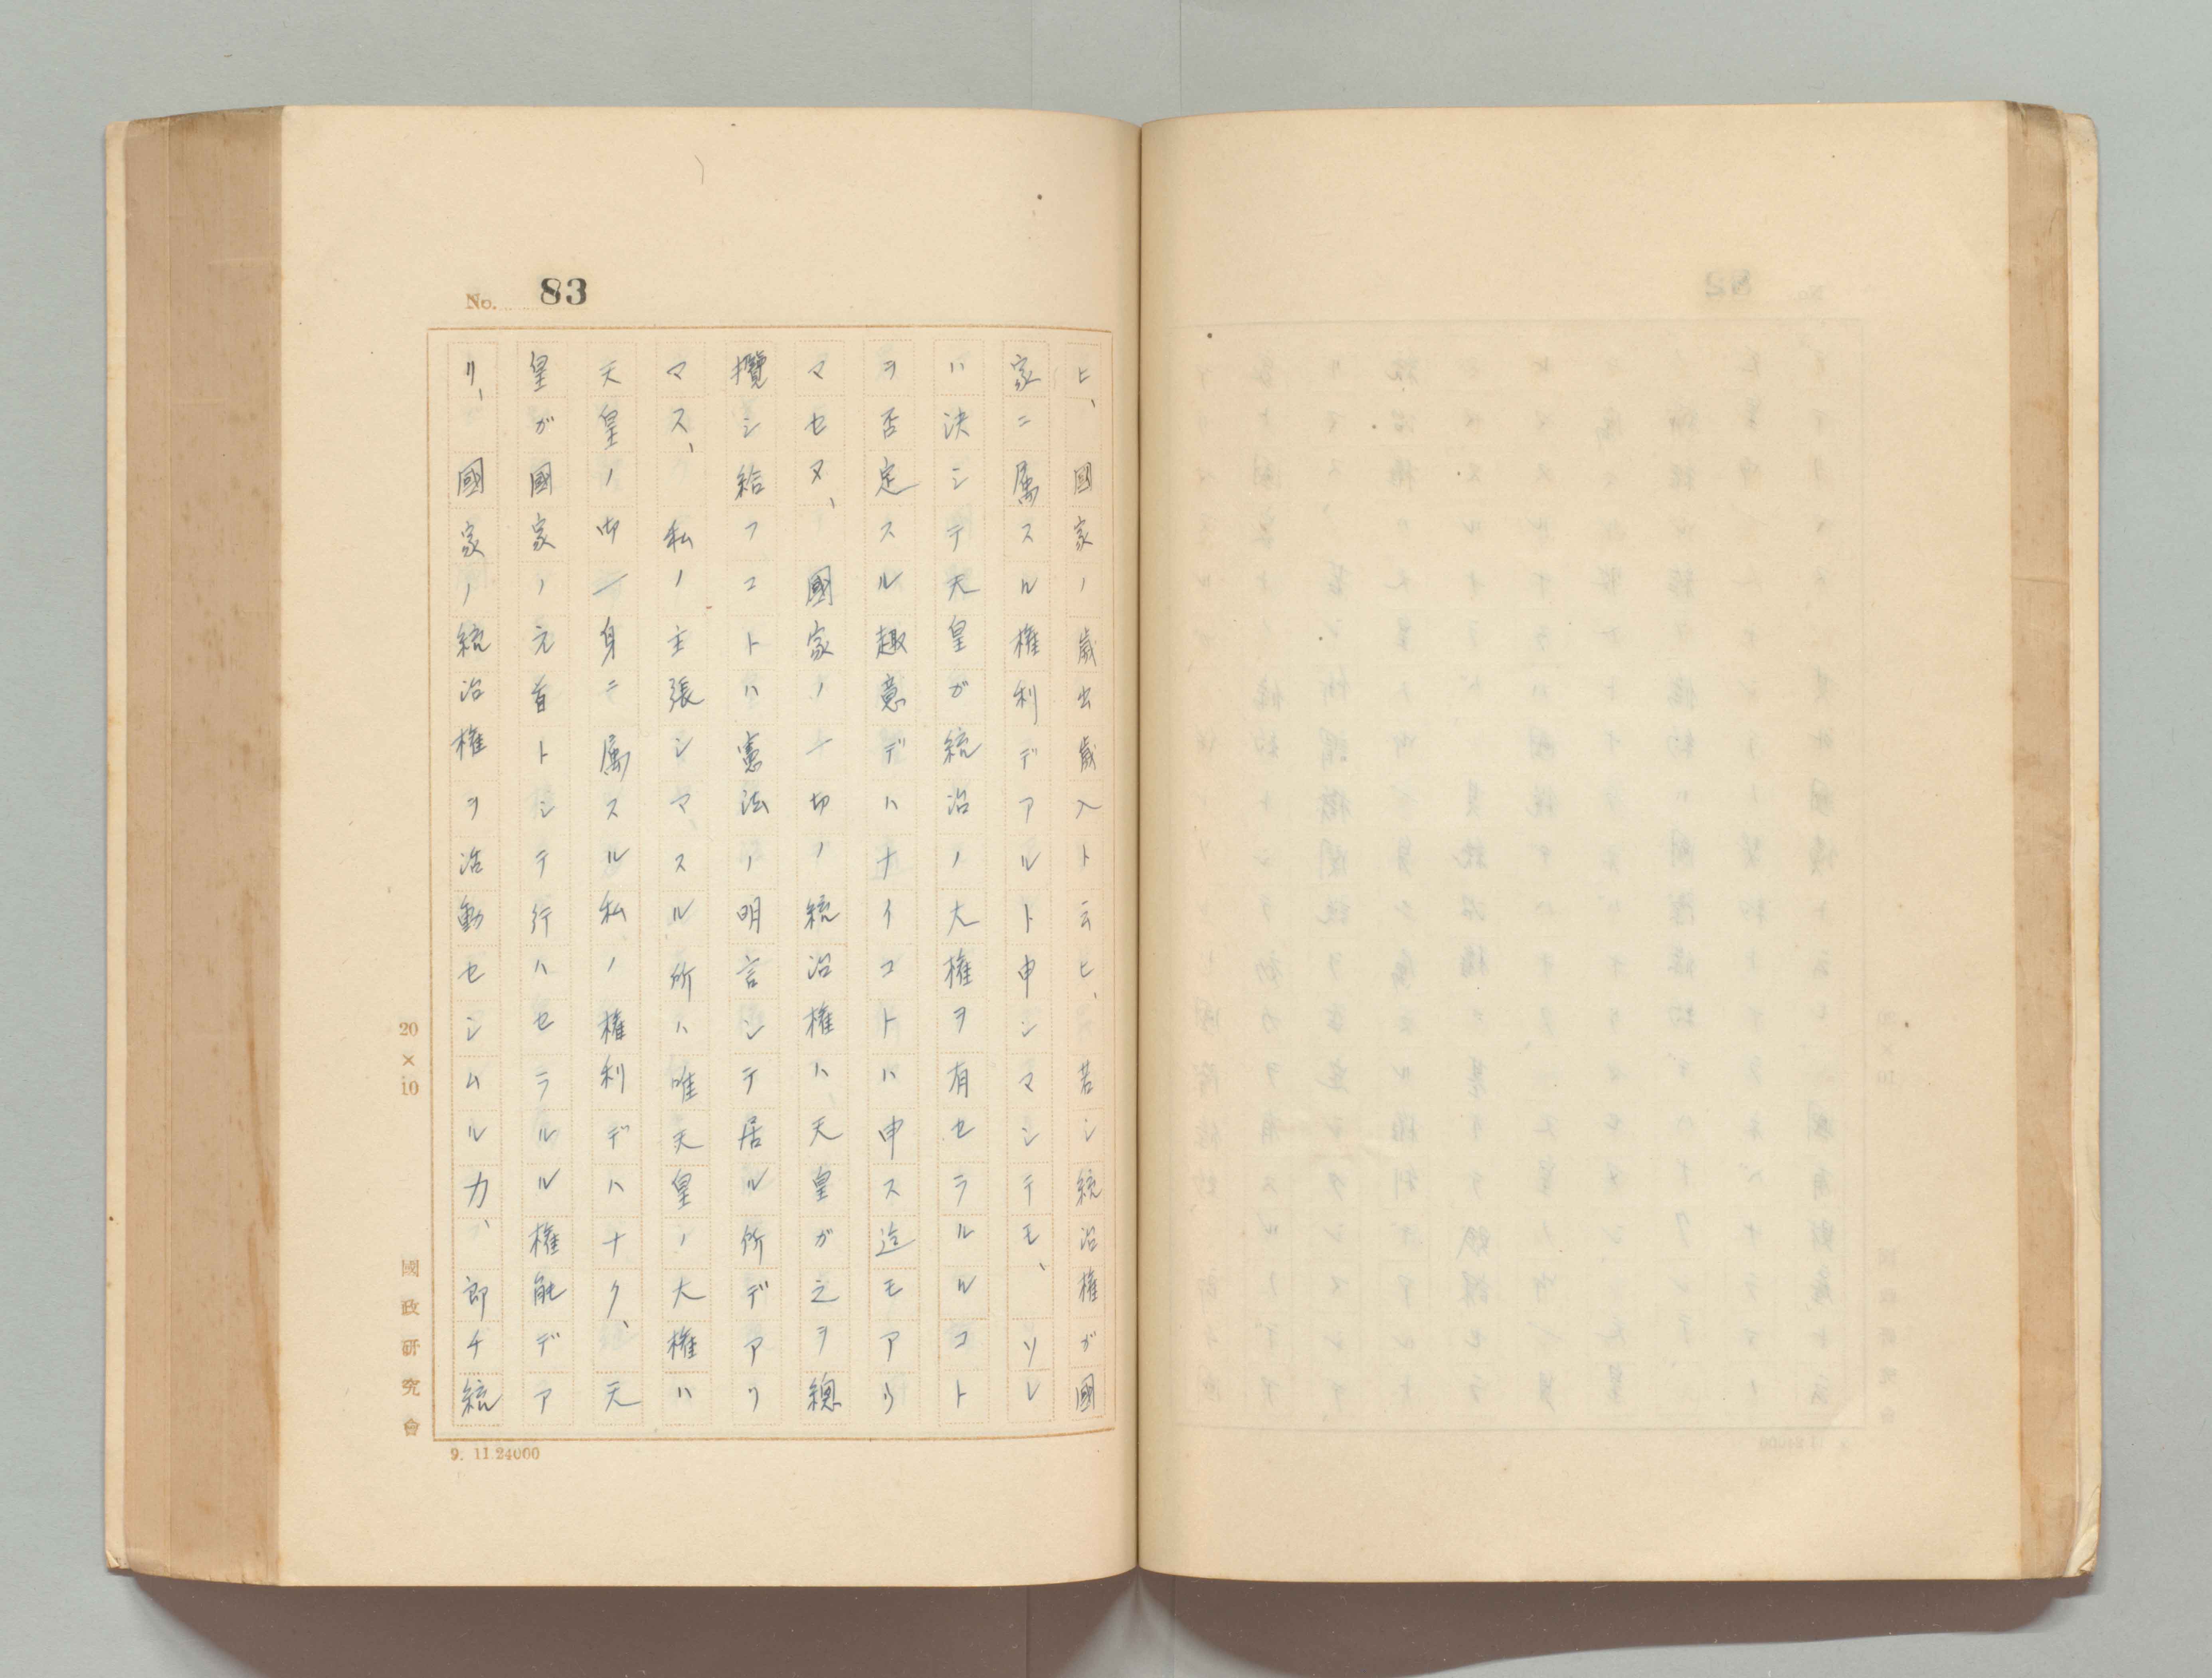 No. 83
ヒ、國家ノ歳出歳入ト云ヒ、若シ統治権ガ國
家ニ属スル権利デアルト申シマシテモ、ソレ
ハ決シテ天皇ガ統治ノ大権ヲ有セラルルコト
ヲ否定スル趣意デハナイコトハ申ス迄モアリ
マセヌ、國家ノ一切ノ統治権ハ、天皇ガ之ヲ總
攬シ給フコトハ憲法ノ明言シテ居ル所デアリ
マス、私ノ主張シマスル所ハ唯天皇ノ大権ハ
天皇ノ御一身ニ属スル私ノ権利デハナク、天
皇ガ國家ノ元首トシテ行ハセラルル権能デア
リ、國家ノ統治権ヲ活動セシムル力、即チ統
20×10
國政研究會
9. 11.24000